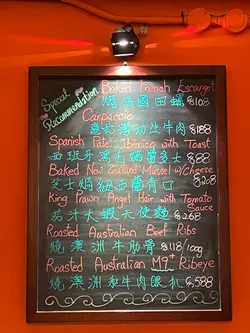 Special
Recommendation
Baked French Escargot
焗法國田螺 $108
Carpaccio
意式薄切生牛肉 $188
Spanish Pate Iberico with Toast
西班牙黑毛豬多士 $88
Baked New Zealand Mussel w/Cheese
芝士焗紐西蘭青口 $208
King Prawn Angel Hair with Tomato
Sauce
茄汁大蝦天使麵 $268
Roasted Australian Beef Ribs
燒澳洲牛肋骨 $118/100g
Roasted Australian M7+ Ribeye
燒澳洲和牛肉眼扒 $588